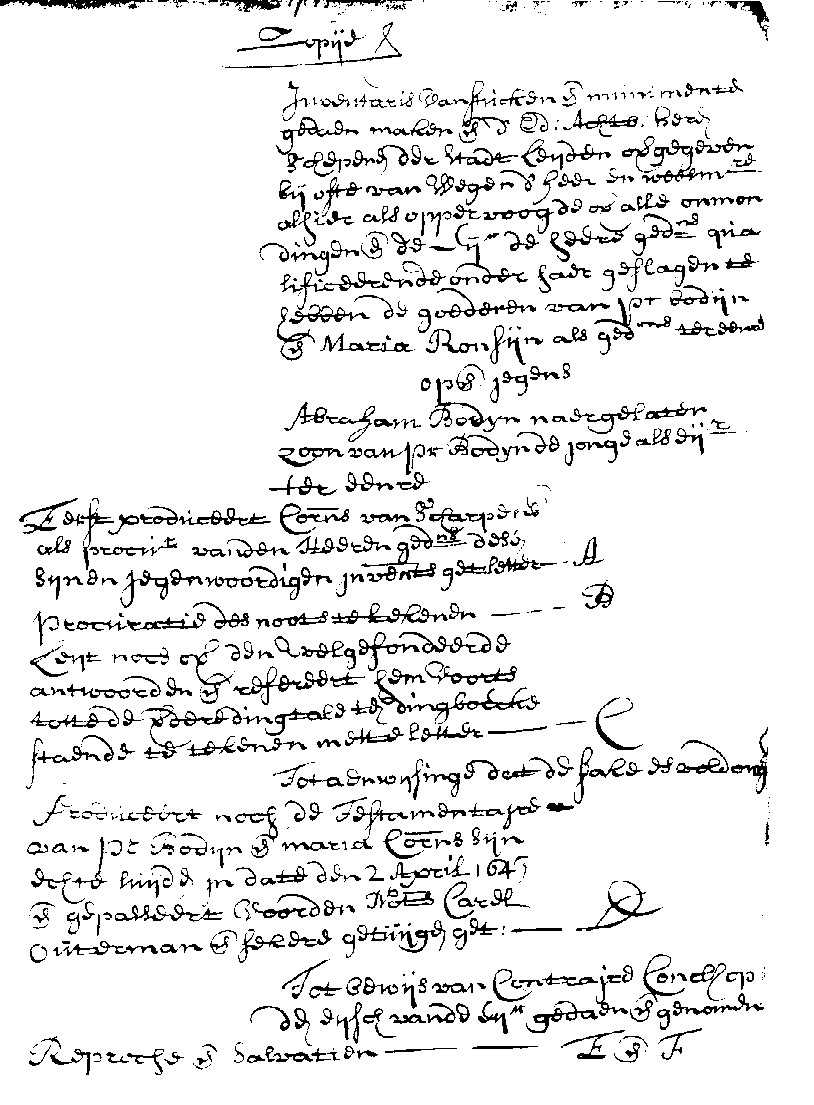 Copije A
Inventaris van stucken en munimente
gedaen maken en d' Ed: Achtb. heren
Schepenen der stadt Leijden overgegeven
bij ofte van wegen d' heer en weesmrs
alhier als oppervoogden over alle onmon
dingen en de Eijrs de heere gedns qua
lificeerende onder haer geslagen te
hebben de goederen van Pr Bodijn
en Maria Ronsijn als gedns ter eenre
op en jegens
Abraham Bodyn naergelaten
zoon van Pr Bodyn de jonge als Eijr
ter eenre
Eerst produceert Corns van Scharpen
als procur vanden Heeren gedns dese
sijnen jegenwoordigen invents get letter A
Procuratie des noots te tekenen B
Leijt noch over den welgefondeerde
antwoorden en refereert hem voorts
totte de verdere dingtale ten dingboecke
staende te tekenen mette letter C
Tot aenwijsinge dat de sake
Produceert noch de Testamentaire
van Pr Bodijn en maria Corns sijn
echte luijden in date den 2 April 164
en gepasseert voorden Nots Carel
Outerman en sekere getuijgen get: D
Tot bewijs van Contrarie Concl: op
den eijsch vande Eijrs gedaen en genomen
Reproche en Salvatien E en F